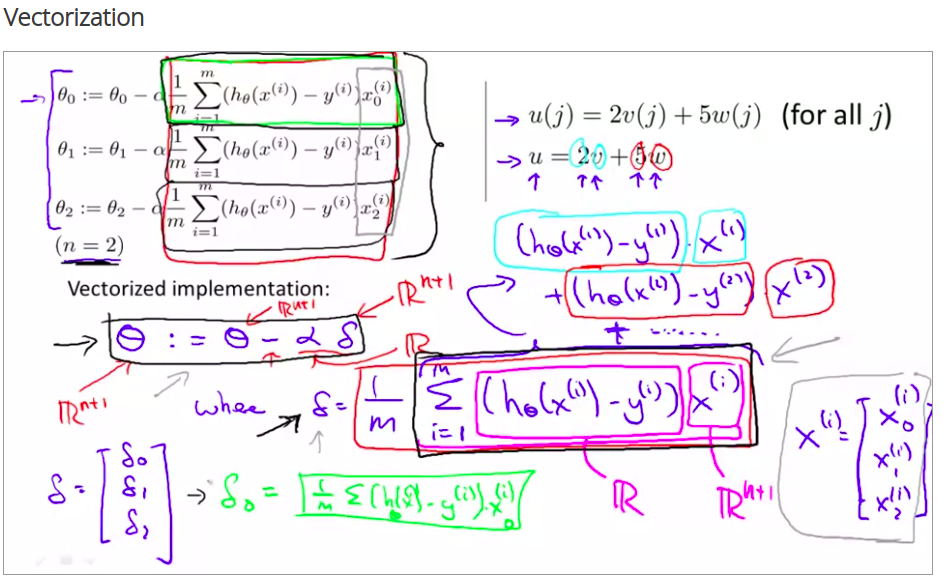 Vectorization
θ₀ := θ₀ − α 1/m ∑_{i=1}^{m} (h_θ(x^{(i)}) − y^{(i)}) x₀^{(i)}
θ₁ := θ₁ − α 1/m ∑_{i=1}^{m} (h_θ(x^{(i)}) − y^{(i)}) x₁^{(i)}
θ₂ := θ₂ − α 1/m ∑_{i=1}^{m} (h_θ(x^{(i)}) − y^{(i)}) x₂^{(i)}
(n = 2)
→ u(j) = 2v(j) + 5w(j) (for all j)
→ u = 2v + 5w
↑ ↑↑ ↑↑
(h_θ(x^{(1)}) − y^{(1)}) · x^{(1)}
+ (h_θ(x^{(2)}) − y^{(2)}) · x^{(2)}
+ ......
Vectorized implementation:
ℝ^{n+1} ℝ^{n+1}
→ θ := θ − α δ
ℝ
ℝ^{n+1}
where δ = 1/m ∑_{i=1}^{m} (h_θ(x^{(i)}) − y^{(i)}) x^{(i)}
ℝ ℝ^{n+1}
x^{(i)} = [x₀^{(i)}
x₁^{(i)}
x₂^{(i)}]
δ = [δ₀
δ₁
δ₂]
→ δ₀ = 1/m ∑ (h_θ(x^{(i)}) − y^{(i)}) · x₀^{(i)}